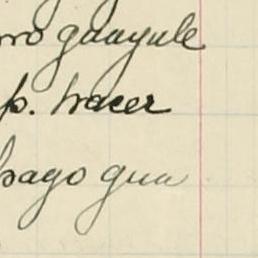 rro guayule
p. hacer
pago gua